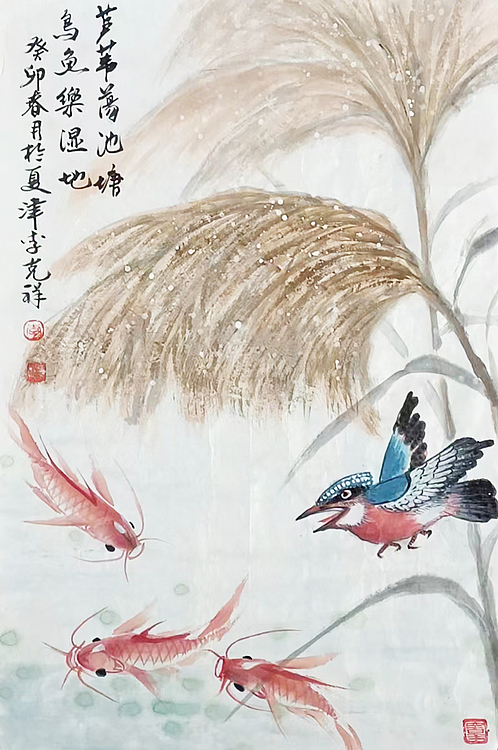 芦苇荡池塘
鸟鱼樂湿地
癸卯春月於夏津李克祥